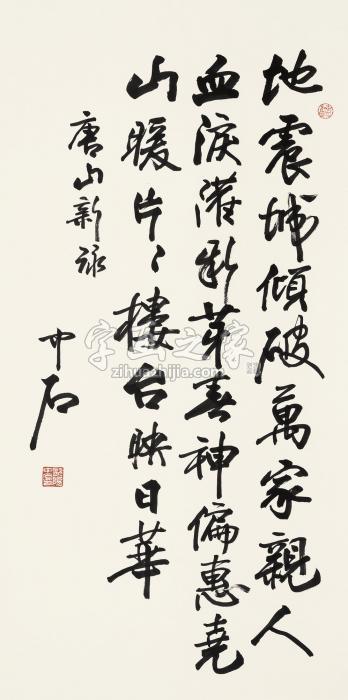 地震城傾破萬家親人
血淚灌新芽春神偏惠堯
山暖片片樓台映日華
唐山新詠
中石
字画之家
zihuazhijia.com